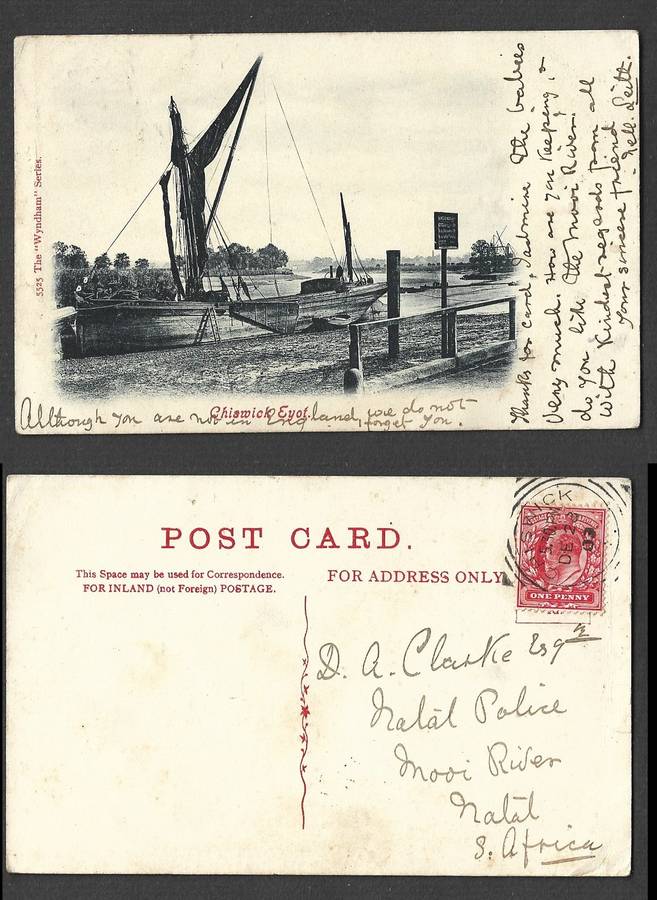 5525 The "Wyndham" Series.
Thanks for card, I admire the babies
Very much. How are you keeping, &
do you like the Mooi River.
With kindest regards from all
Your sincere friend
Nell. Leith.
Chiswick Eyot.
Although you are not in England, we do not
forget you.
POST CARD.
This Space may be used for Correspondence.
FOR INLAND (not Foreign) POSTAGE.
FOR ADDRESS ONLY
WICK
DE 23
03
ONE PENNY
D. A. Clarke Esqre
Natal Police
Mooi River
Natal
S. Africa